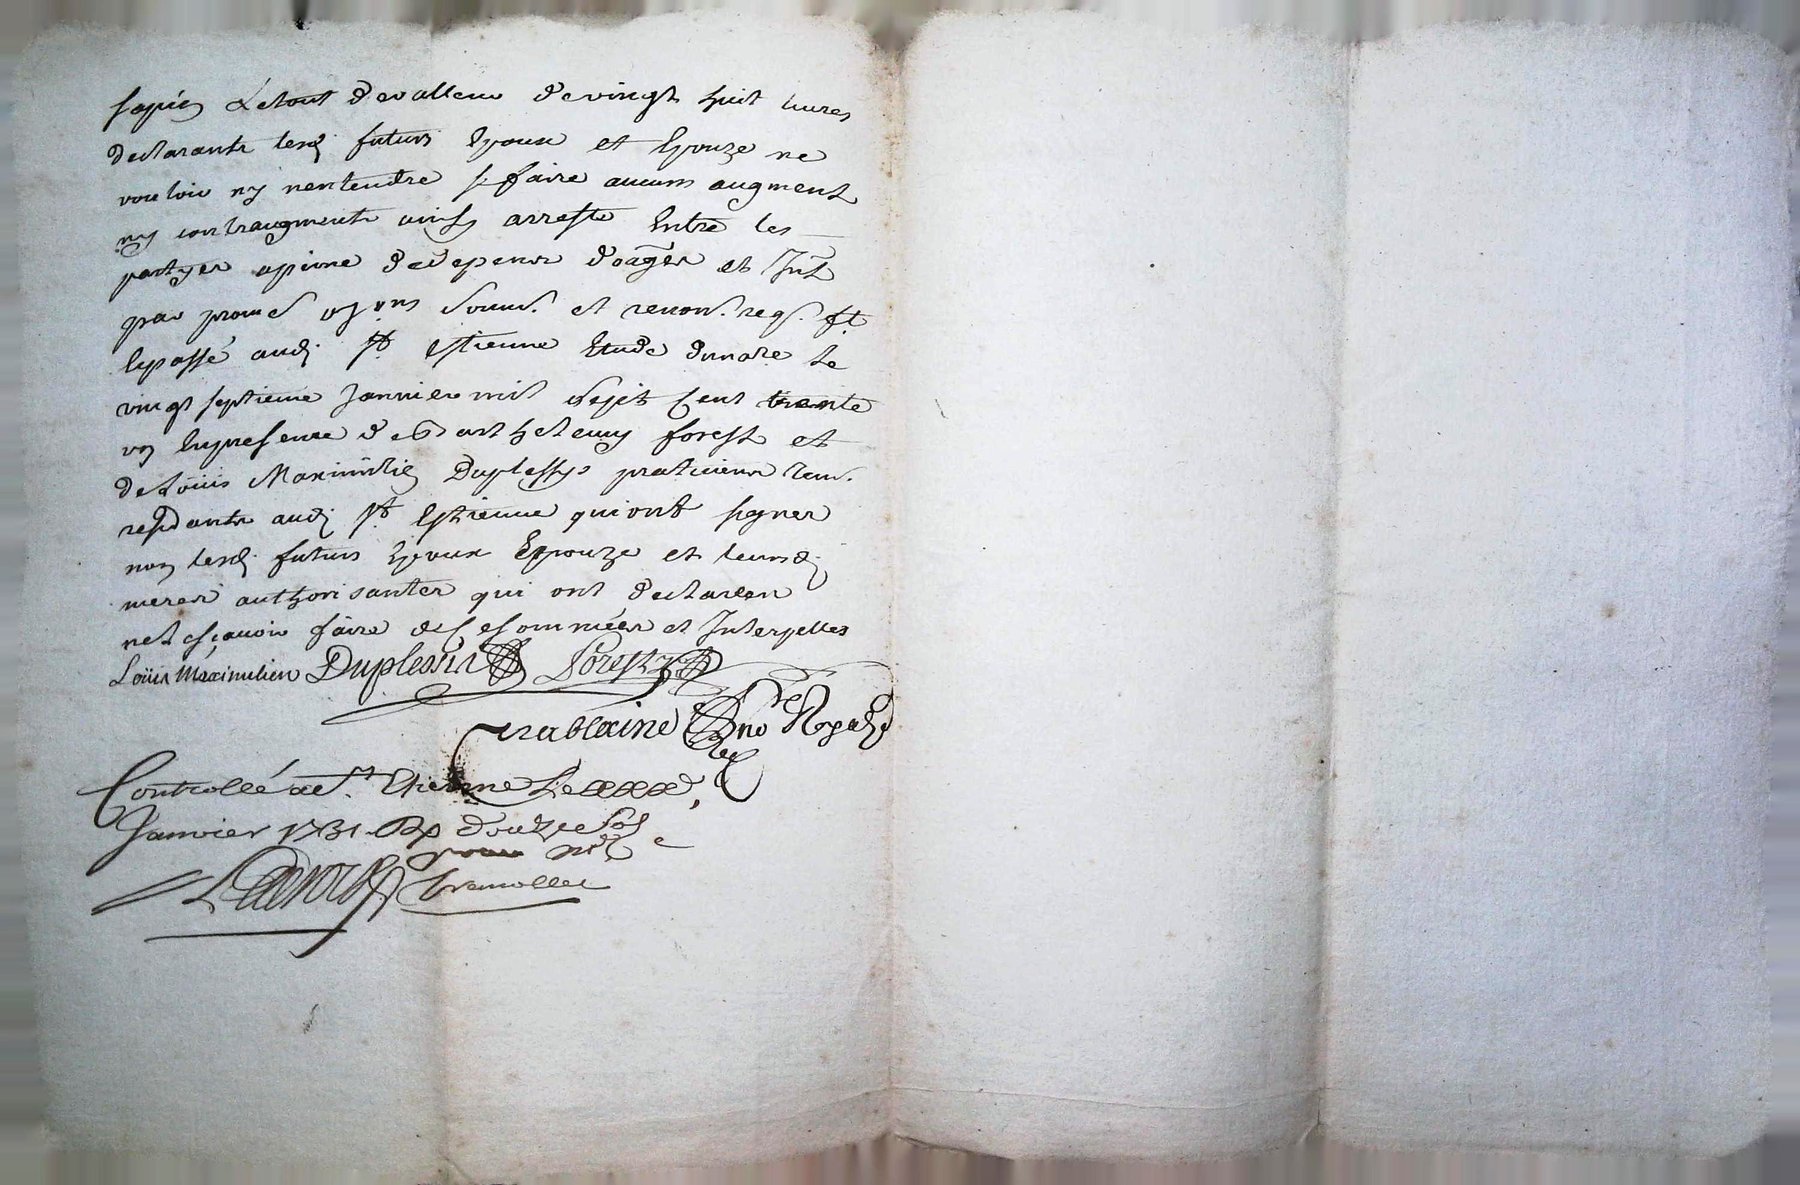 sapin Le tout de valleur de vingt huit livres
declarants lesd futurs Epoux et Epouze ne
vouloir ny nentendre se faire aucum augment
ny contraugment ainsy arresté Entre les
partyes apeine de depens domāges et Int
par promes soums. et renon. req. ft
Expassé aud. st Estienne Etude dunore Le
vingt septieme Janvier mil sept Cent trente
un En presence de Barthelemy forest et
de Loüis Maximilien Duplessys praticiens tem.
residants aud. st Estienne qui ont signer
non lesd. futurs Epoux Epouze et leursd.
meres authorisantes qui ont declarer
ne sçavoir faire de ce sommées et Interpellés
Loüis Maximilien Duplessis Forest
Crablaine Nore Royal
Controllé a St. Etienne Le xxx e
Janvier 1731. R douze sols
pour mr
Tremollet